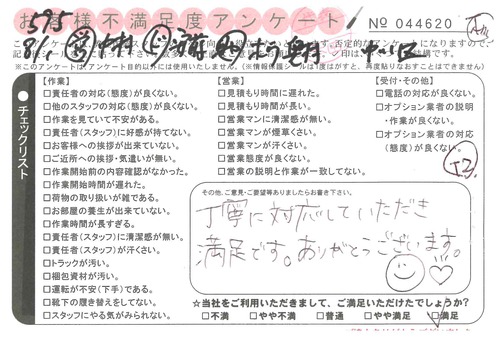 お客様不満足度アンケート
№ 044620
※このアンケートはアンケート目的以外には使用いたしません。(※情報保護シールは1度はがすと、再度貼りなおすことはできません)
チェックリスト
【作業】
□責任者の対応(態度)が良くない。
□他のスタッフの対応(態度)が良くない。
□作業を見ていて不安がある。
□責任者(スタッフ)に好感が持てない。
□お客様への挨拶が出来ていない。
□ご近所への挨拶・気遣いが無い。
□作業開始前の内容確認がなかった。
□作業開始時間が遅れた。
□荷物の取り扱いが雑である。
□お部屋の養生が出来ていない。
□作業時間が長すぎる。
□責任者(スタッフ)に清潔感が無い。
□責任者(スタッフ)が汗くさい。
□トラックが汚い。
□梱包資材が汚い。
□運転が不安(下手)である。
□靴下の履き替えをしてない。
□スタッフにやる気がみられない。
【営業】
□見積もり時間に遅れた。
□見積もり時間が長い。
□営業マンに清潔感が無い。
□営業マンが煙草くさい。
□営業マンが汗くさい。
□営業態度が良くない。
□営業の説明と作業が一致してない。
【受付・その他】
□電話の対応が良くない。
□オプション業者の説明
・作業が良くない。
□オプション業者の対応
(態度)が良くない。
その他、ご意見・ご要望等ありましたらお書き下さい。
丁寧に対応していただき
満足です。ありがとうございます。
☆当社をご利用いただきまして、ご満足いただけたでしょうか?
□不満 □やや不満 □普通 □やや満足 □満足